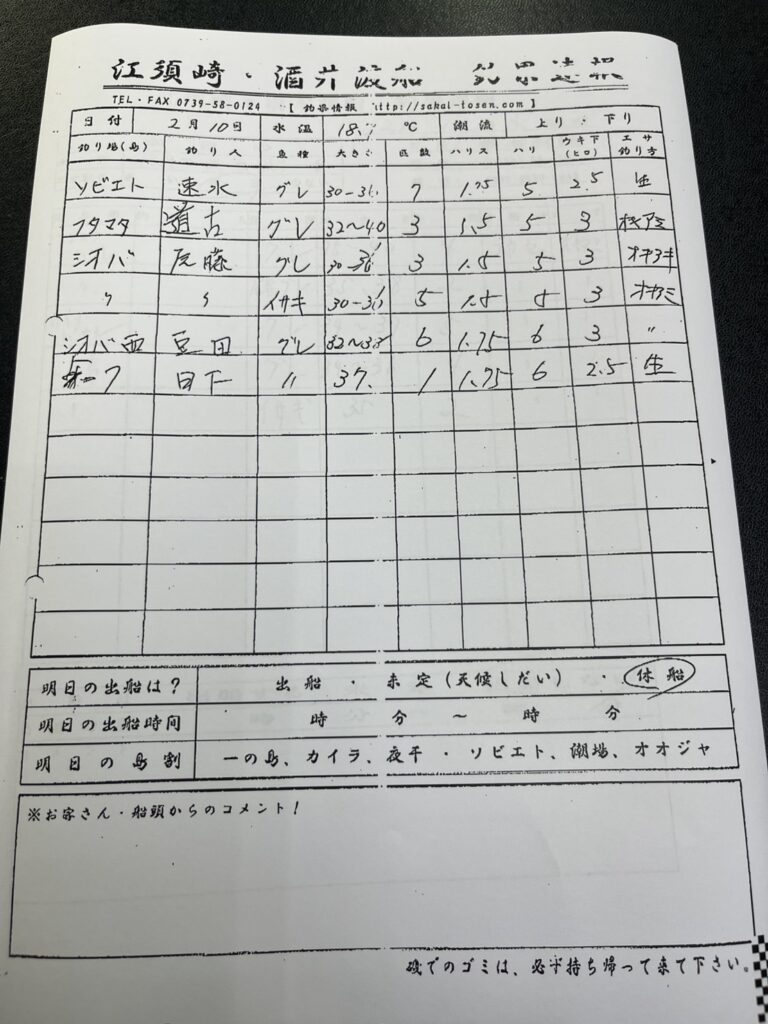 江須崎・酒井渡船 釣果速報
TEL・FAX 0739-58-0124 【 釣果情報 http://sakai-tosen.com 】
日付 2月10日 水温 18.7 ℃ 潮流 上り・下り
釣り場(島) 釣り人 魚種 大きさ 匹数 ハリス ハリ ウキ下(ヒロ) エサ釣り方
ソビエト 速水 グレ 30-36 7 1.75 5 2.5 生
フタマタ 道古 グレ 32〜40 3 1.5 5 3 オキアミ
シオバ 尾藤 グレ 30-36 3 1.5 5 3 オキアミ
〃 〃 イサキ 30-36 5 1.5 5 3 オキアミ
シオバ西 豆田 グレ 32〜38 6 1.75 6 3 〃
日下 〃 37. 1 1.75 6 2.5 生
明日の出船は? 出船・未定(天候しだい)・休船
明日の出船時間 時 分 〜 時 分
明日の島割 一の島、カイラ、夜干・ソビエト、潮場、オオジャ
※お客さん・船頭からのコメント!
磯でのゴミは、必ず持ち帰って来て下さい。